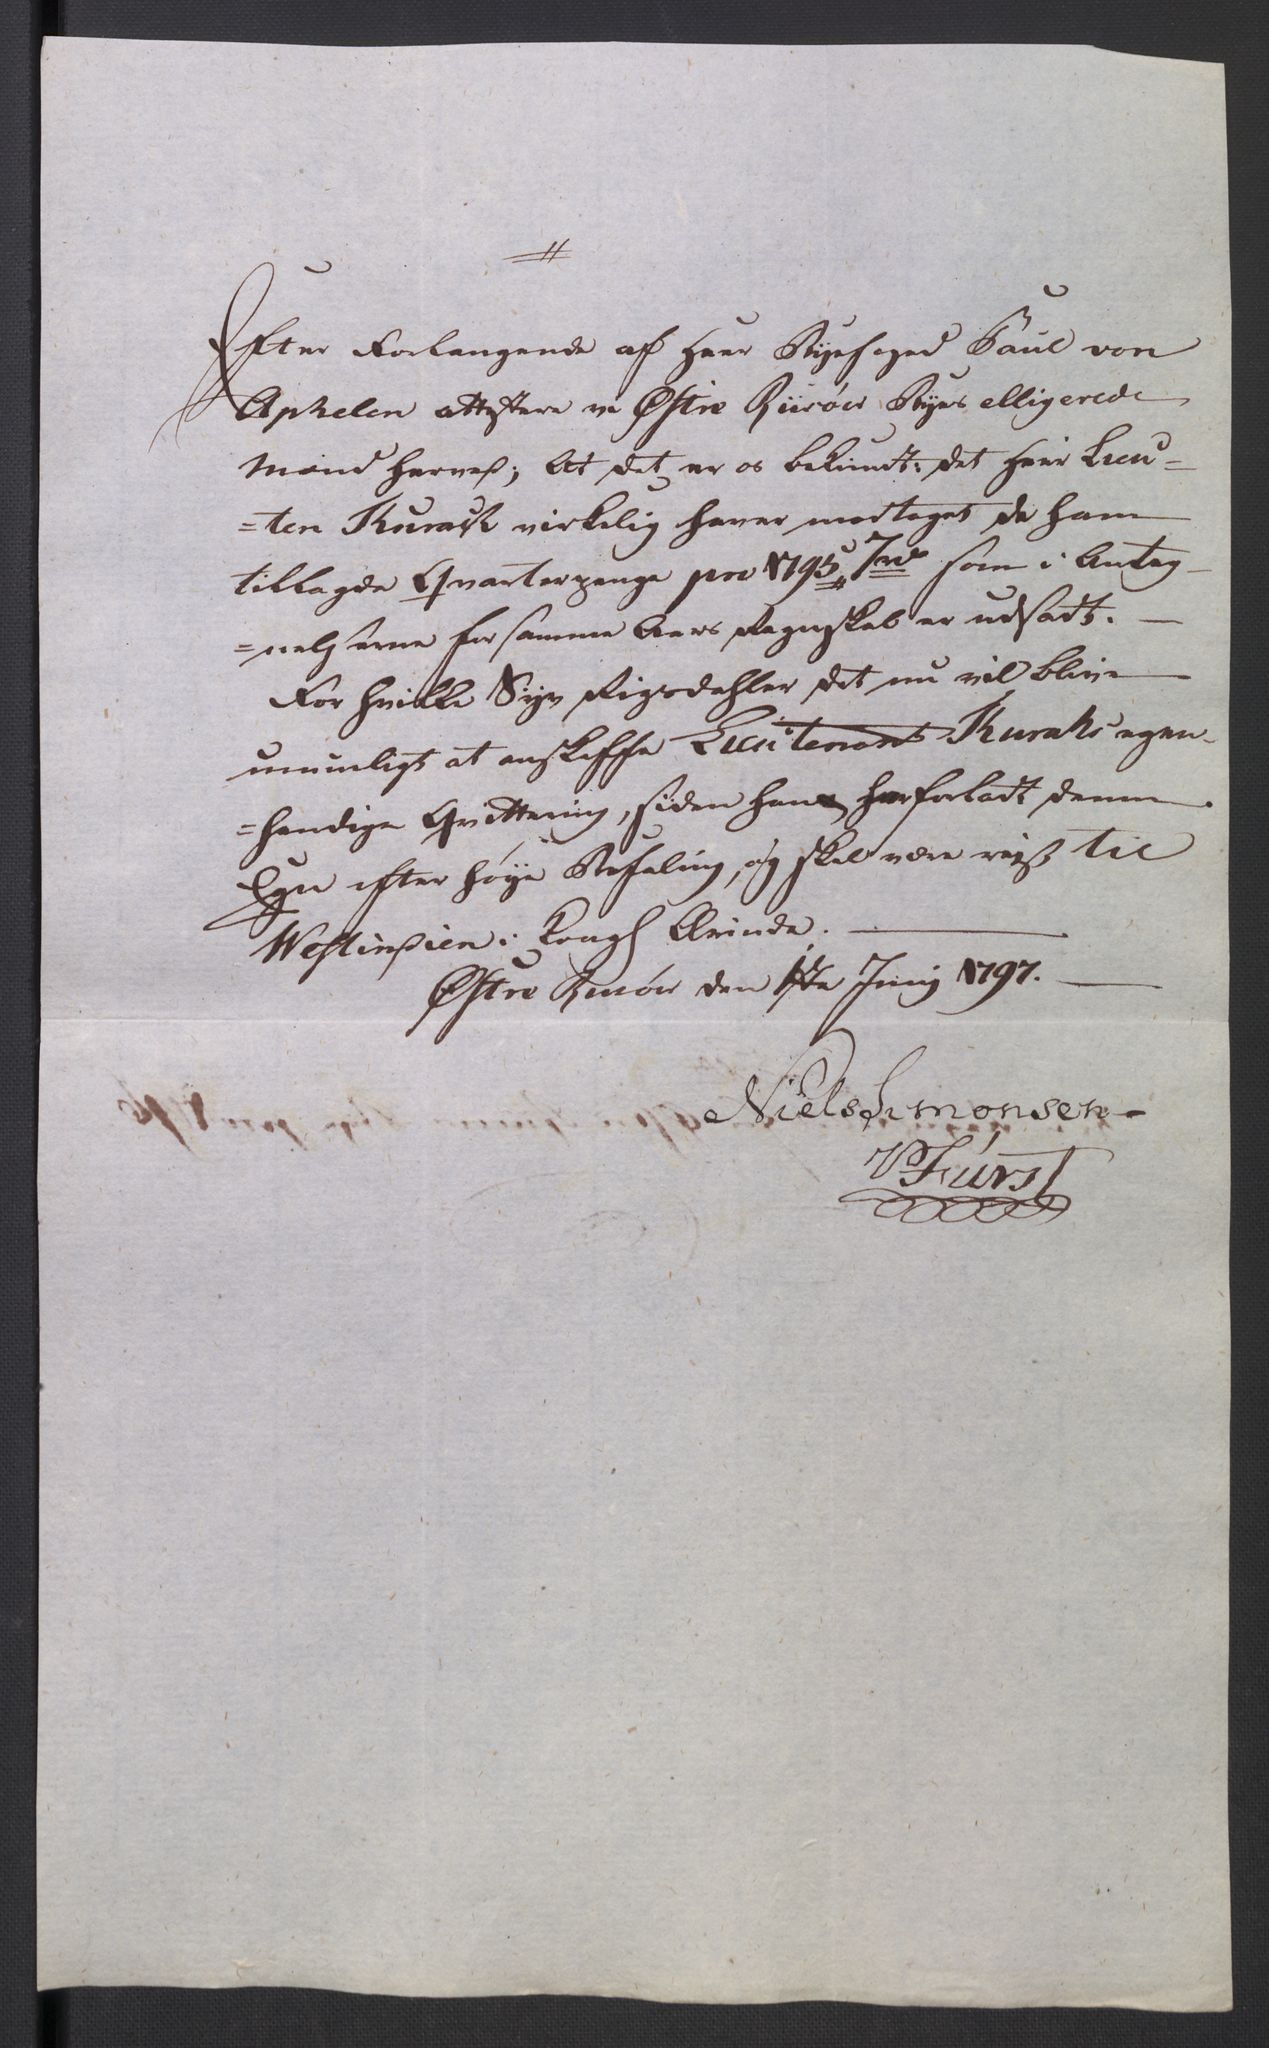 Efter Forlangende af Herr Byefoged Paul von
Aphelen attestere vi Østre Riisöer Byes elligerede
Mænd herved; At det er os bekiendt: det Herr Lieu-
=ten Kurack virkelig haver modtaget de ham
tillagde Qvarterpenge pro 1795 7 rd som i Anteg-
=nelserne for samme Aars Regnskab er udsadt. —
For hvilke Syv Rigsdahler det nu vil blive
umueligt at anskaffe Lieutenant Kuraks egen-
=hendige Qvittering, siden han har forladt denne
Egn efter høye Befaling, og skal være reist til
Westindien i Kongl Ærinde. —
Østre Riisöer den 1ste Junij 1797. —
Niels Simonsen
P Fürst